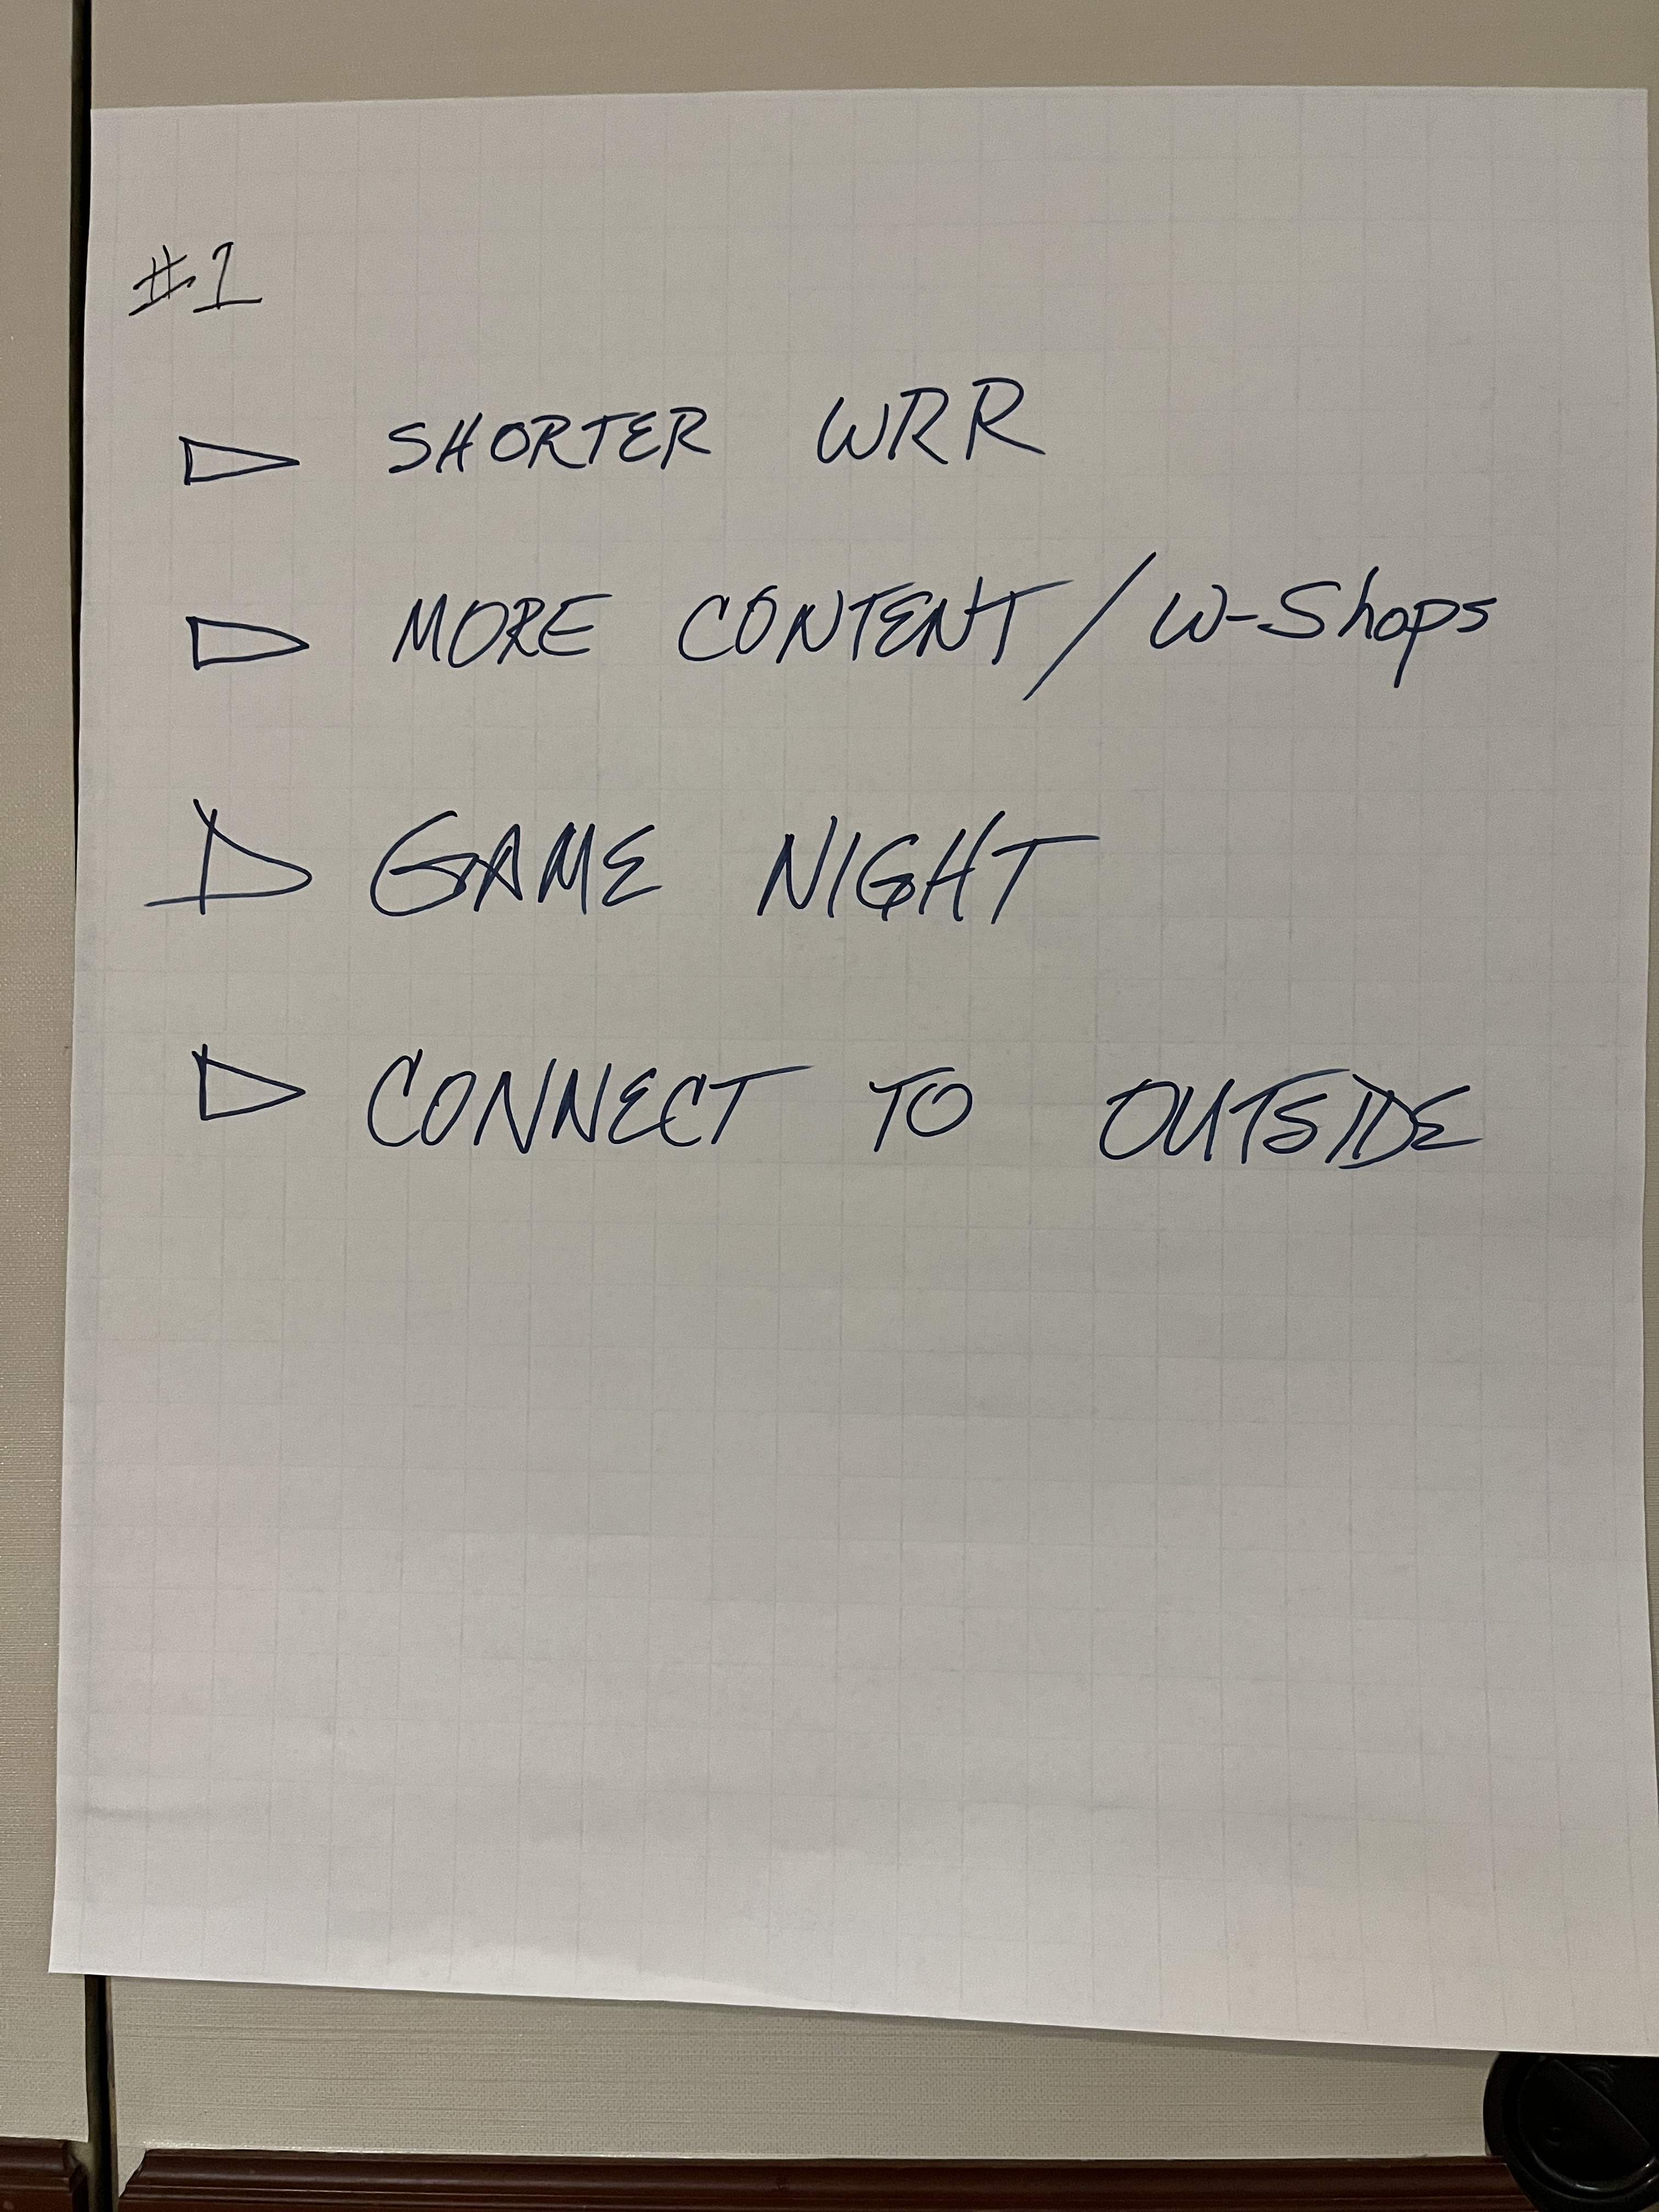 #1
SHORTER WRR
MORE CONTENT / W-Shops
GAME NIGHT
CONNECT TO OUTSIDE